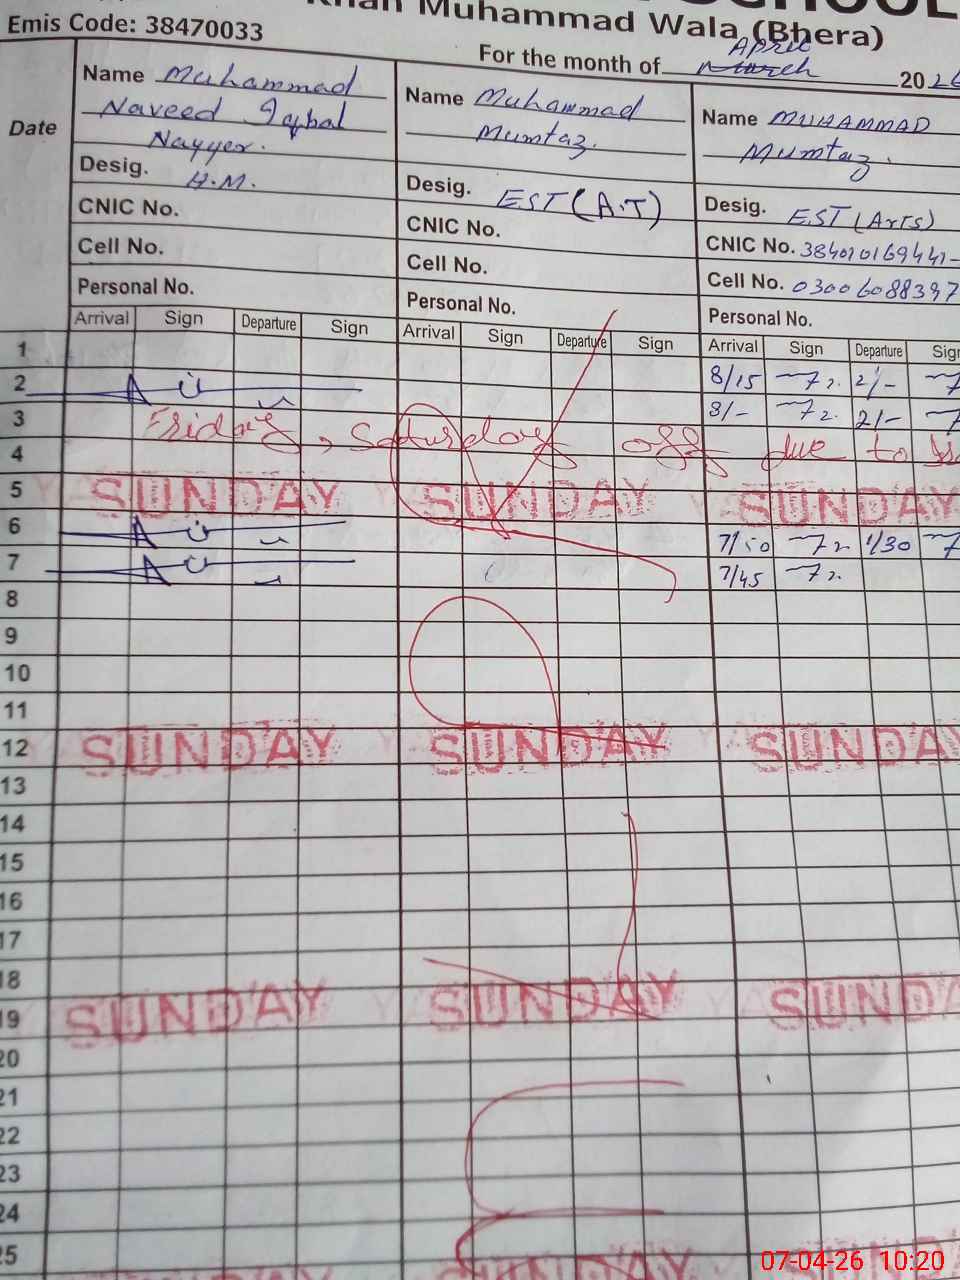 SCHOOL
Khan Muhammad Wala (Bhera)
Emis Code: 38470033
For the month of March April 202
Date
Name Muhammad
Naveed Iqbal
Nayyer.
Desig. H.M.
CNIC No.
Cell No.
Personal No.
Name Muhammad
Mumtaz.
Desig. EST (A.T)
CNIC No.
Cell No.
Personal No.
Name MUHAMMAD
Mumtaz.
Desig. EST (Arts)
CNIC No. 384010169441-
Cell No. 03006088397
Personal No.
Arrival Sign Departure Sign Arrival Sign Departure Sign Arrival Sign Departure Sign
1 8/15 2/-
2 A 8/- 2/-
3 Friday, Saturday off due to
4
5 SUNDAY SUNDAY SUNDAY
6 A 7/50 1/30
7 A 7/45
8
9
10
11
12 SUNDAY SUNDAY SUNDAY
13
14
15
16
17
18
19 SUNDAY SUNDAY SUNDA
20
21
22
23
24
25
07-04-26 10:20